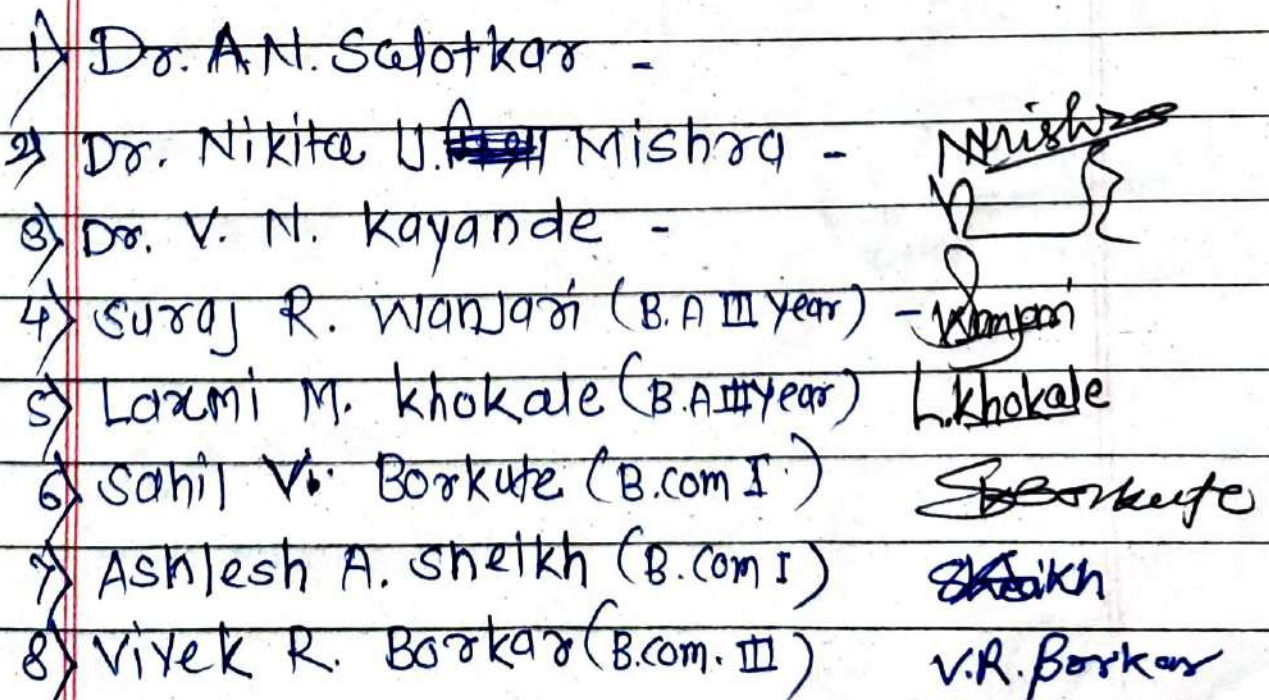 1) Dr. A.N. Salotkar -
2) Dr. Nikita U. Mishra - NMishra
3) Dr. V. N. Kayande -
4) Suraj R. Wanjari (B.A III Year) - Wanjari
5) Laxmi M. Khokale (B.A III Year) L.Khokale
6) Sahil V. Borkute (B.com I.) SBorkute
7) Ashlesh A. Sheikh (B.com I) Shaikh
8) Vivek R. Borkar (B.com. III) V.R. Borkar